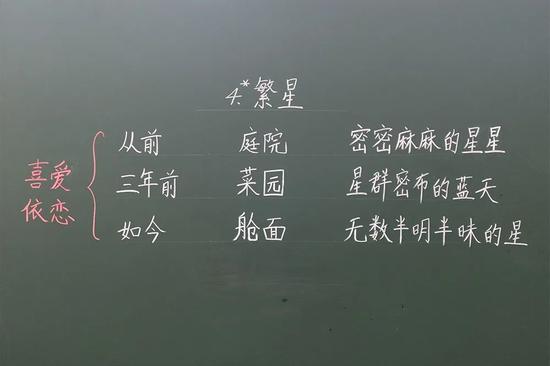 4.*繁星
从前 庭院 密密麻麻的星星
三年前 菜园 星群密布的蓝天
如今 舱面 无数半明半昧的星
喜爱
依恋